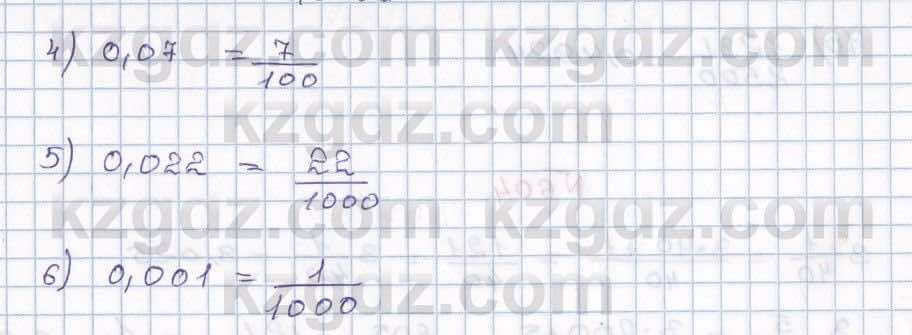 kzgdz.com kzgdz.com
4) 0,07 = 7/100
kzgdz.com
5) 0,022 = 22/1000
kzgdz.com kzgdz.com
6) 0,001 = 1/1000
kzgdz.com